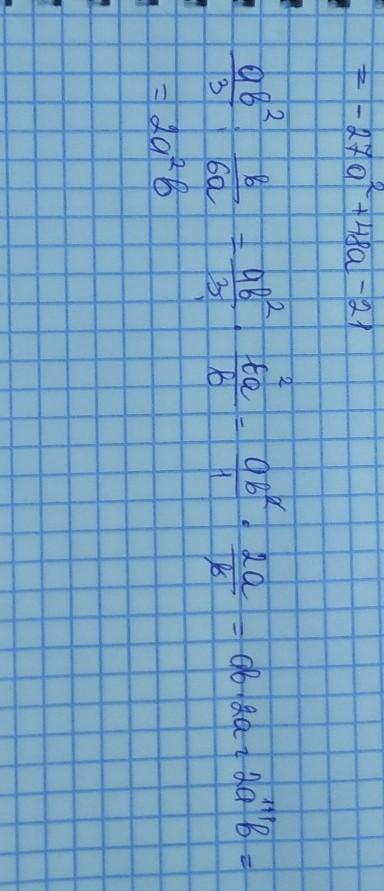 = -27a² + 48a - 21
ab²/3 : b/6a = ab²/3 · 6a/b = ab²/1 · 2a/b = ab · 2a = 2a¹⁺¹b =
= 2a²b